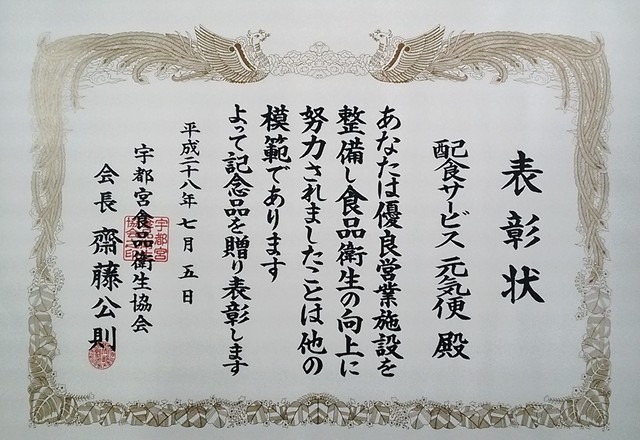 表彰状
配食サービス 元気便 殿
あなたは優良営業施設を
整備し食品衛生の向上に
努力されましたことは他の
模範であります
よって記念品を贈り表彰します
平成二十八年七月五日
宇都宮食品衛生協会
会長 齋藤公則